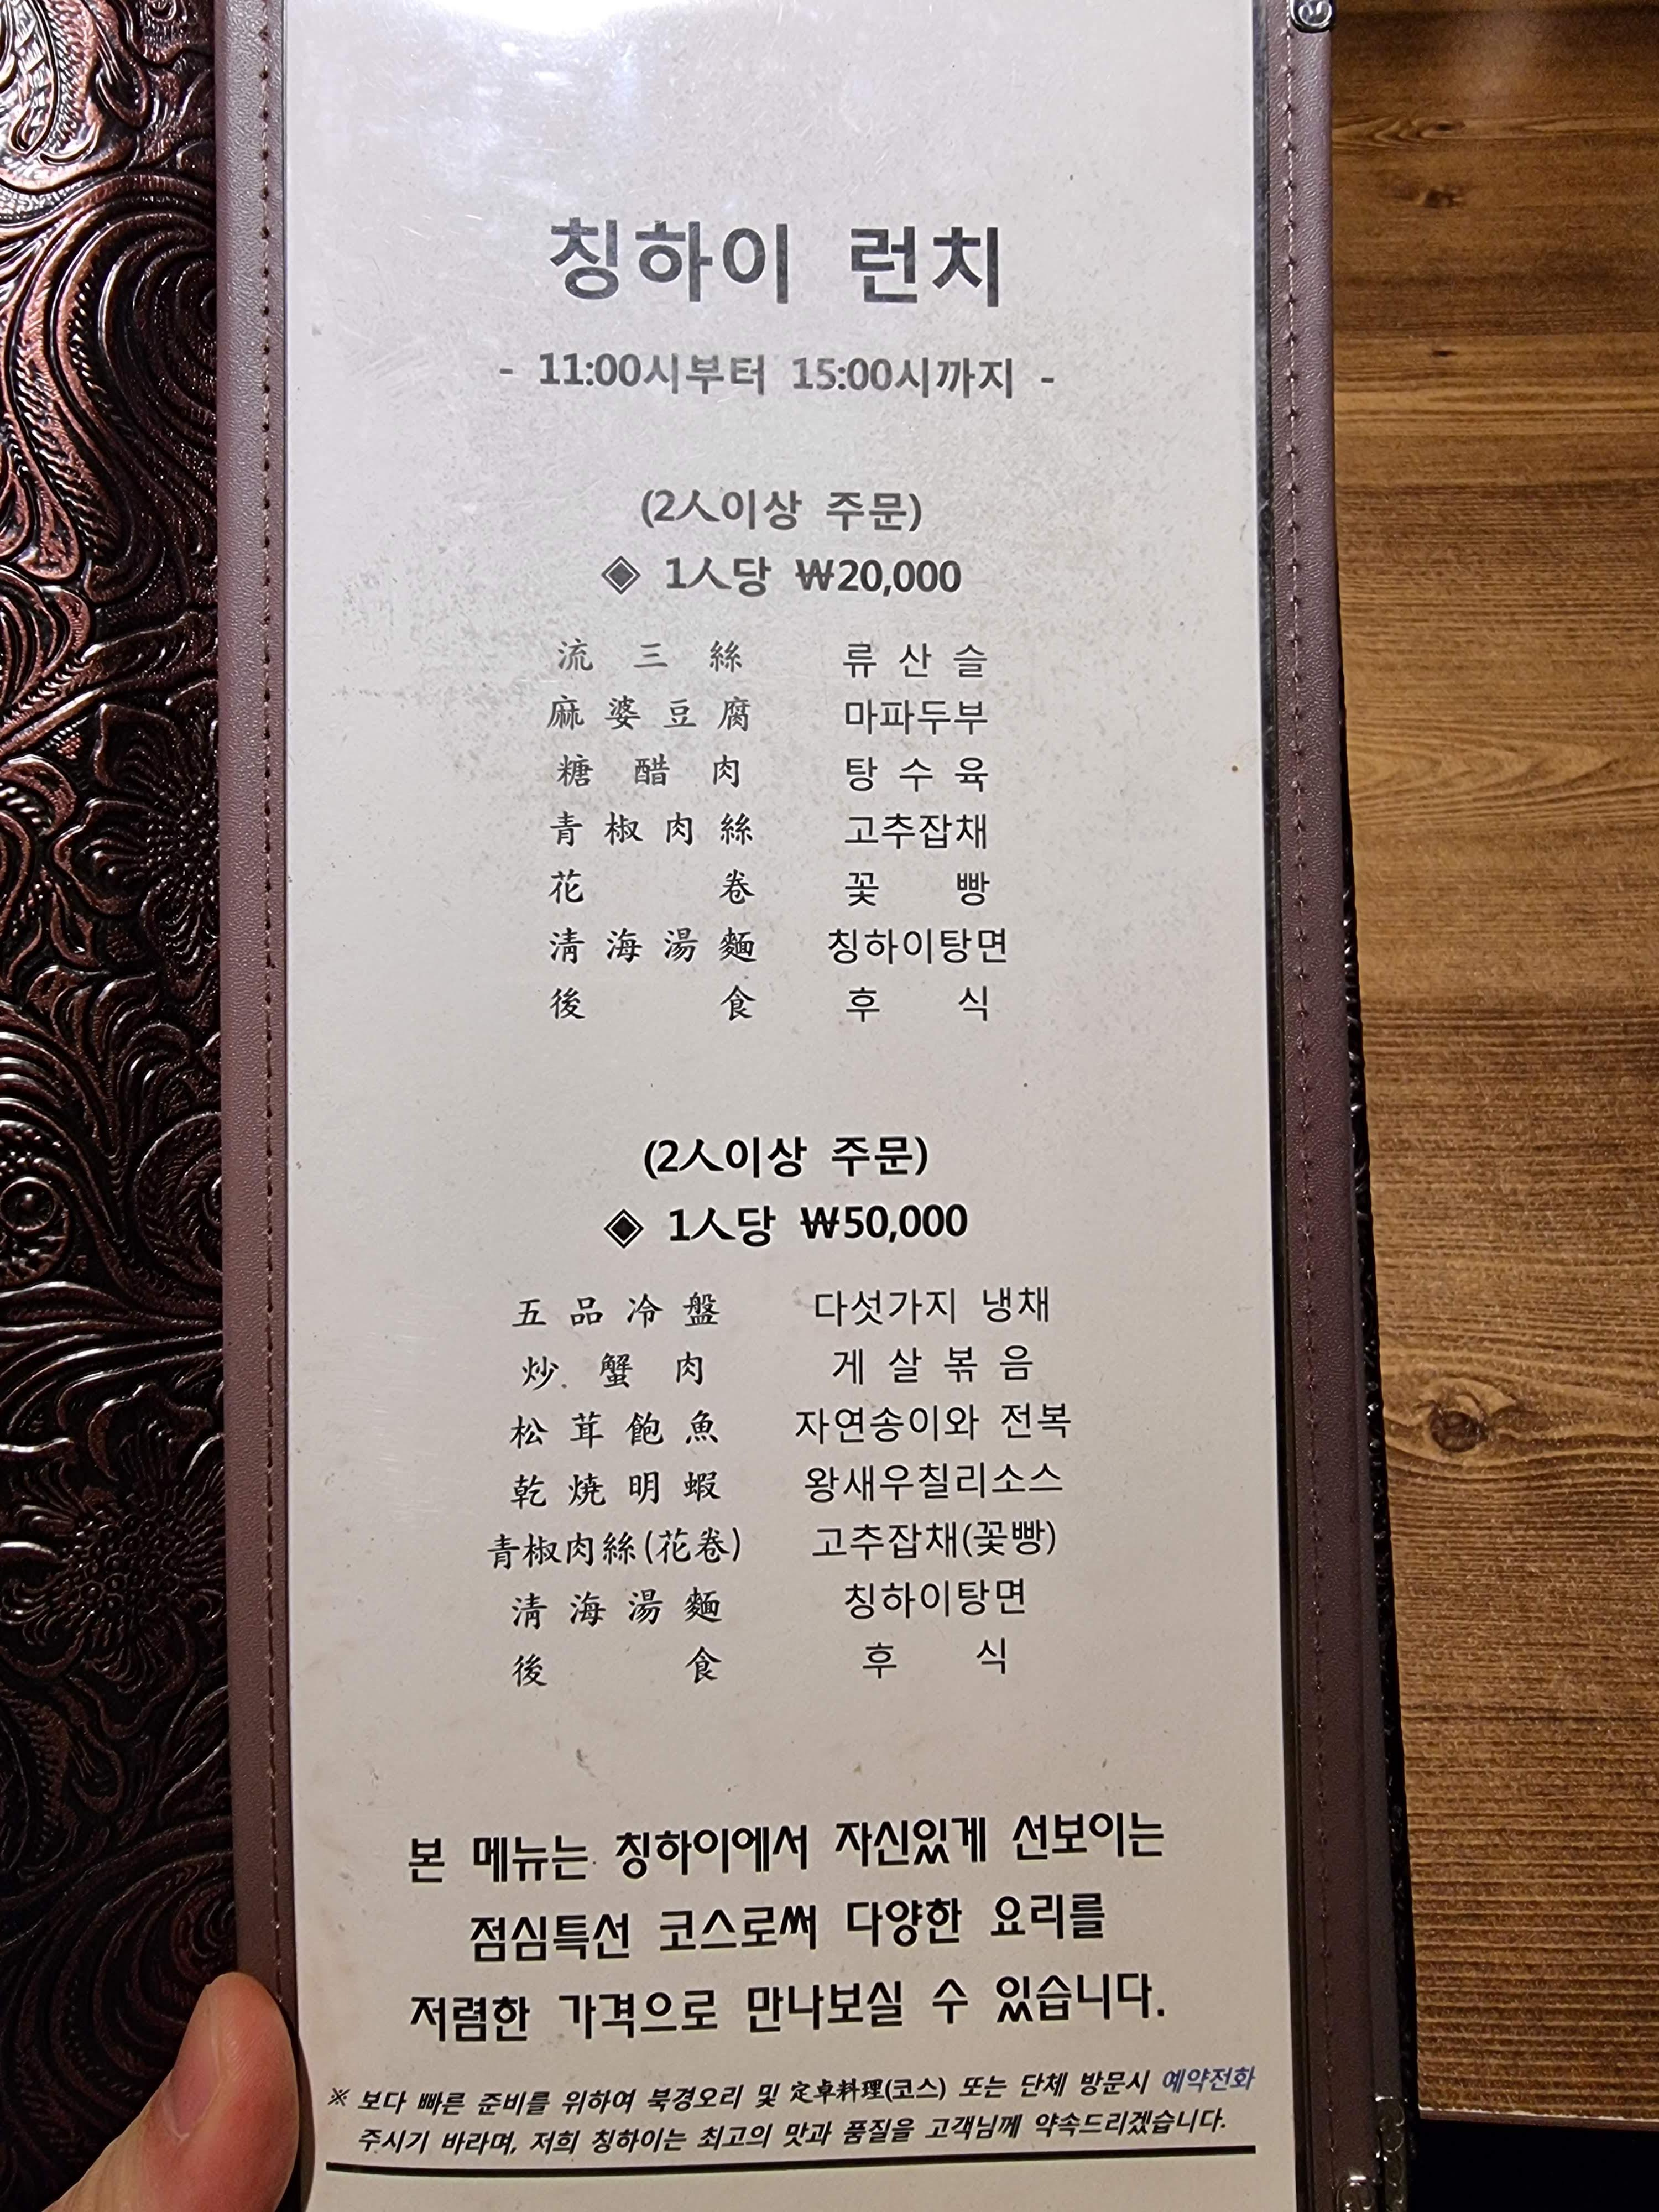 칭하이 런치
- 11:00시부터 15:00시까지 -
(2人이상 주문)
◈ 1人당 ₩20,000
流三絲 류산슬
麻婆豆腐 마파두부
糖醋肉 탕수육
青椒肉絲 고추잡채
花卷 꽃빵
淸海湯麵 칭하이탕면
後食 후식
(2人이상 주문)
◈ 1人당 ₩50,000
五品冷盤 다섯가지 냉채
炒蟹肉 게살볶음
松茸飽魚 자연송이와 전복
乾燒明蝦 왕새우칠리소스
青椒肉絲(花卷) 고추잡채(꽃빵)
淸海湯麵 칭하이탕면
後食 후식
본 메뉴는 칭하이에서 자신있게 선보이는
점심특선 코스로써 다양한 요리를
저렴한 가격으로 만나보실 수 있습니다.
※ 보다 빠른 준비를 위하여 북경오리 및 定卓料理(코스) 또는 단체 방문시 예약전화
주시기 바라며, 저희 칭하이는 최고의 맛과 품질을 고객님께 약속드리겠습니다.